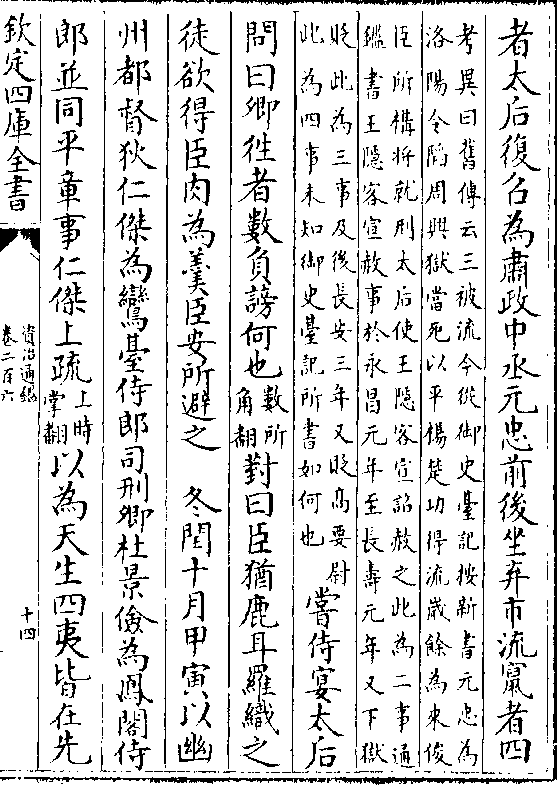 者太后復召為肅政中丞元忠前後坐弃市流竄者四
考異曰舊傳云三被流今從御史臺記按新書元忠為
洛陽令陷周興獄當死以平楊楚功得流嵗餘為來俊
臣所構將就刑太后使王隠客宣詔赦之此為二事通
鑑書王隠客宣赦事於永昌元年至長壽元年又下獄
貶此為三事及後長安三年又貶髙要尉
此為四事未知御史臺記所書如何也
嘗侍宴太后
問曰卿徃者數負謗何也
數所
角翻
對曰臣猶鹿耳羅織之
徒欲得臣肉為羮臣安所避之　冬閏十月甲寅以幽
州都督狄仁傑為鸞臺侍郎司刑卿杜景儉為鳳閣侍
郎並同平章事仁傑上疏
上時
掌翻
以為天生四夷皆在先
欽定四庫全書
資治通鑑
卷二百六
十四